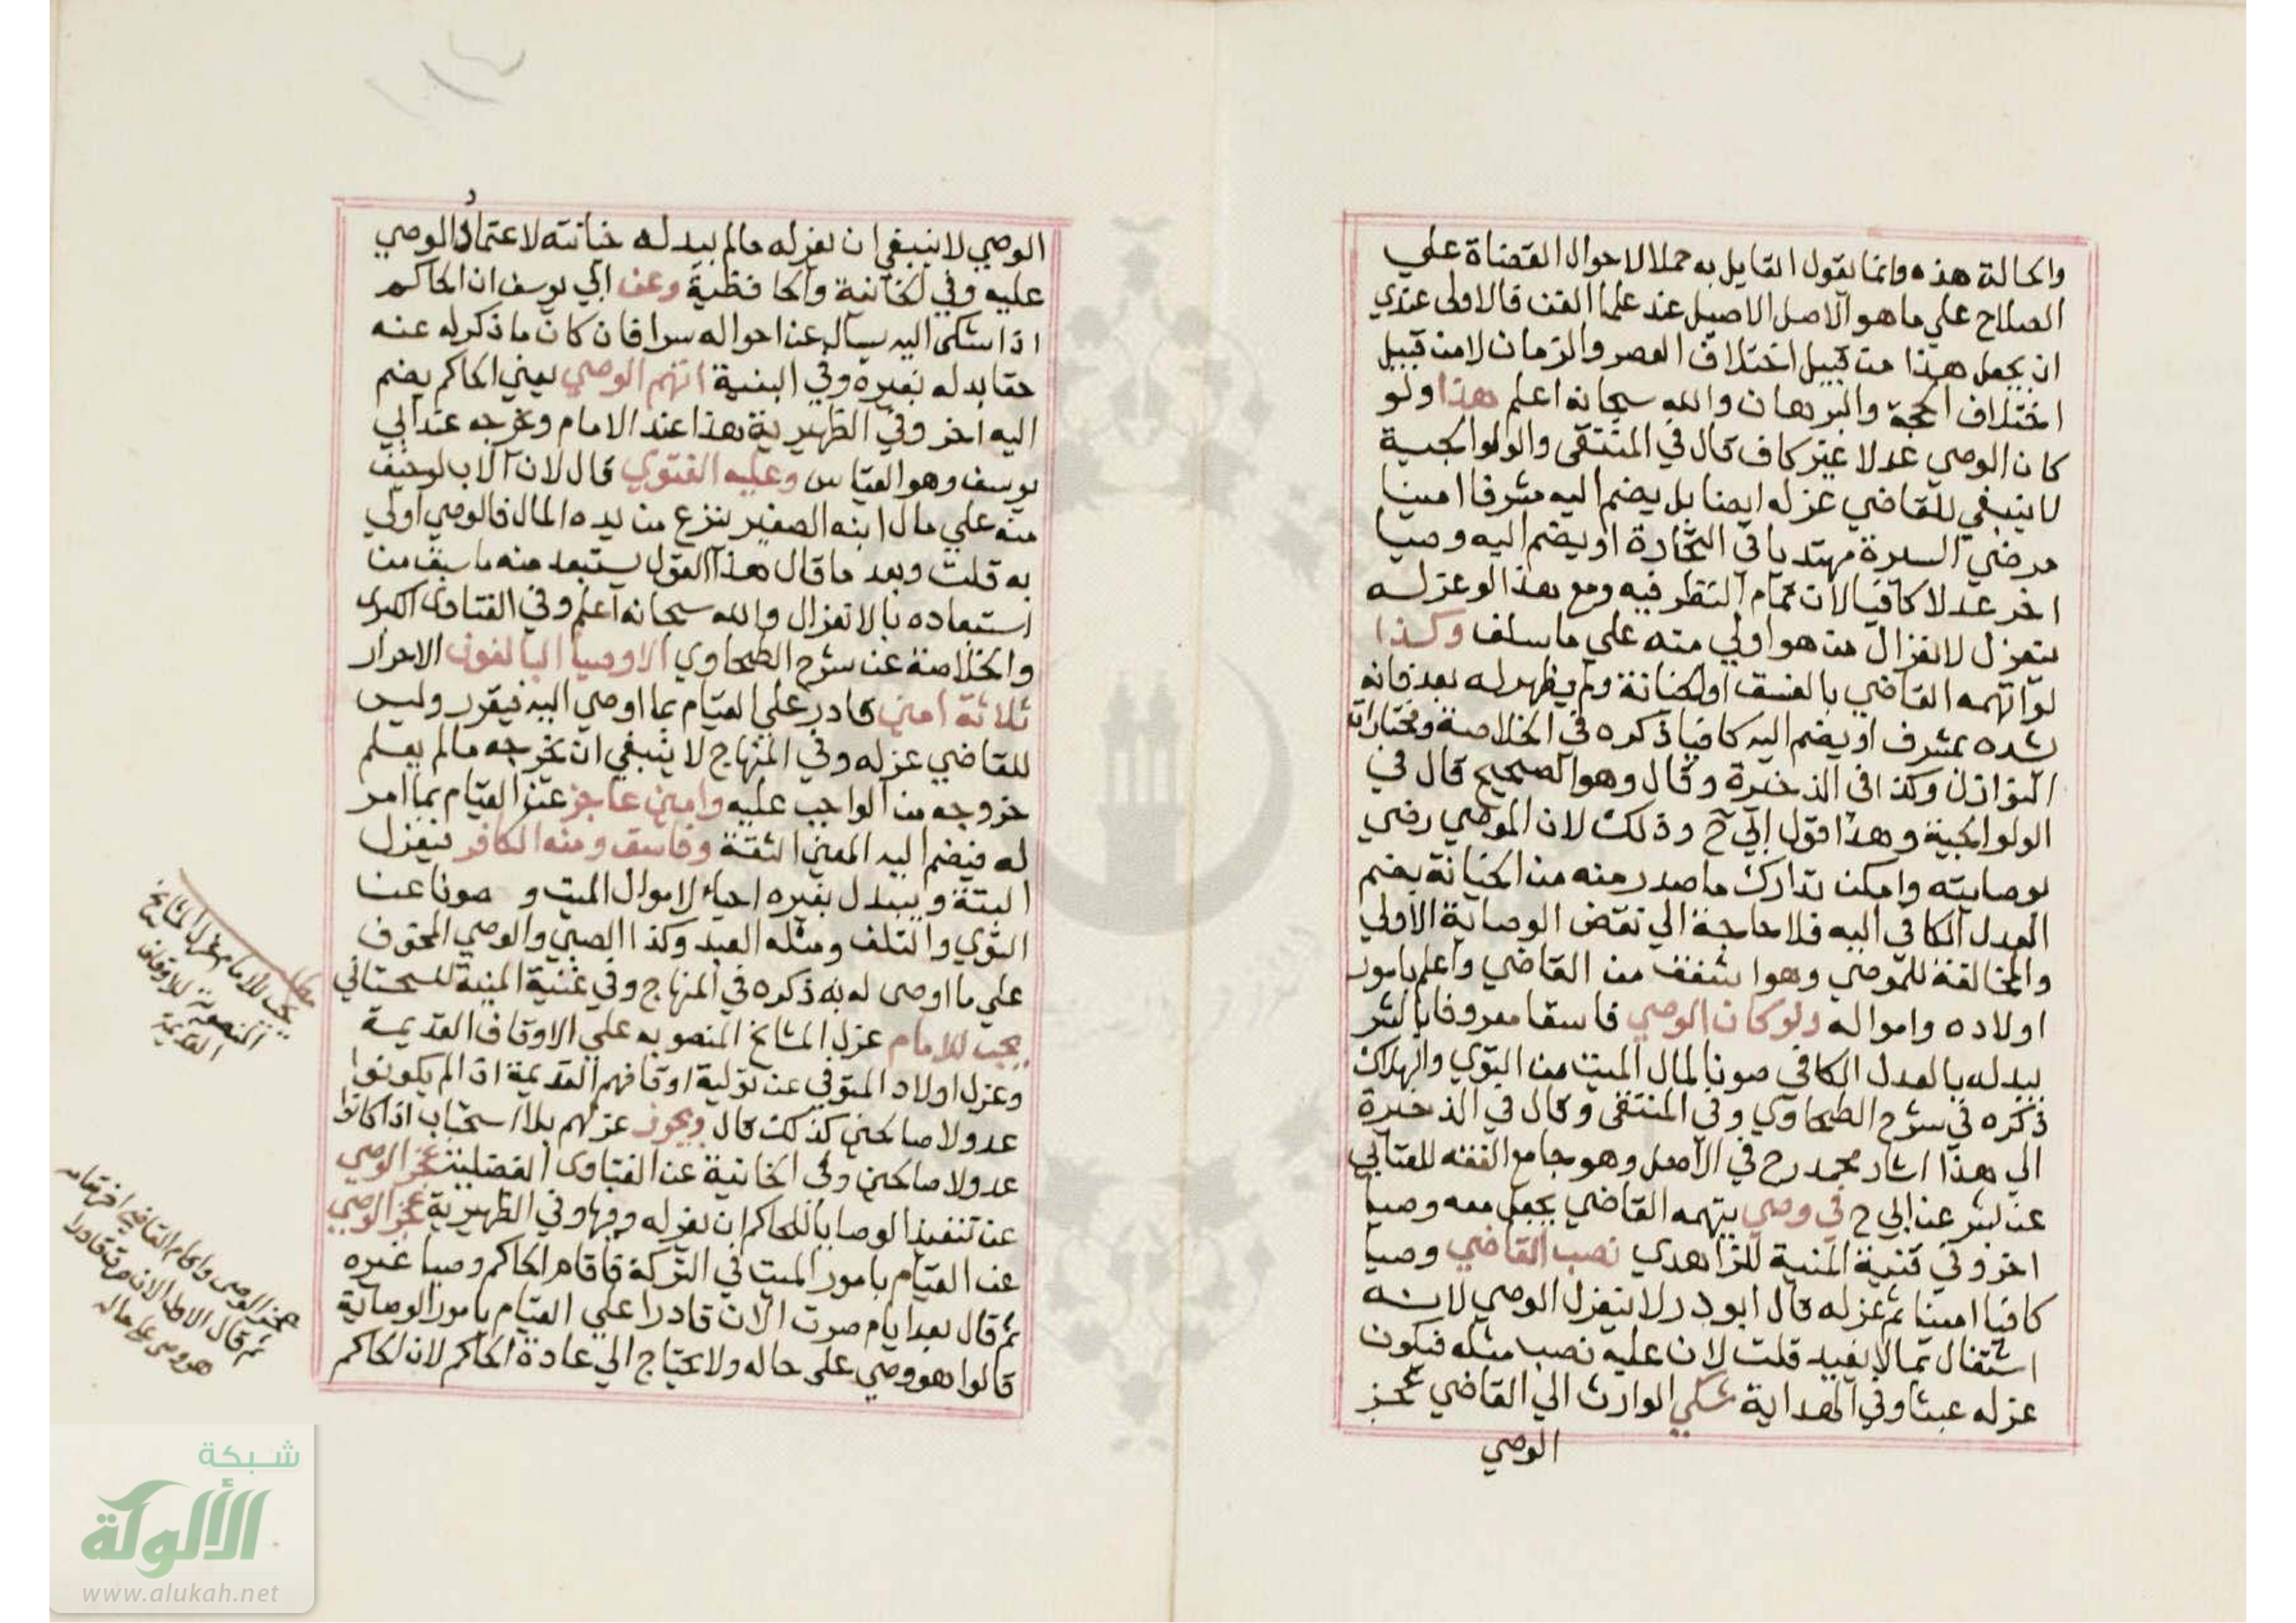 والحالة هذه وانما يقول القايل به حملا لاحوال القضاة علي
الصلاح علي ما هو الاصل الاصيل عند علما الفن فالاولى عندي
ان يجعل هذا من قبيل اختلاف العصر والزمان لا من قبيل
اختلاف الحجة والبرهان والله سبحانه اعلم هذا ولو
كان الوصي عدلا غير كاف قال في المنتقى والولوالجية
لا ينبغي للقاضي عزله ايضا بل يضم اليه مشرفا امينا
مرضي السيرة مهتديا في التجارة او يضم اليه وصيا
اخر عدلا كافيا لان تمام النظر فيه ومع هذا لو عزله
ينعزل لانعزال من هو اولي منه علي ما سلف وكذا
لو اتهمه القاضي بالفسق او الخيانة ولم يظهر له بعد فانه
يشده بمشرف او يضم اليه كافيا ذكره في الخلاصة ومختارات
النوازل وكذا في الذخيرة وقال وهو الصحيح قال في
الولوالجية وهذا قول ابي ح وذلك لان الموصي رضي
بوصايته وامكن تدارك ما صدر منه من الخيانة بضم
العدل الكافي اليه فلا حاجة الي نقض الوصاية الاولي
والمخالفة للموصي وهو اشفق من القاضي واعلم بامور
اولاده وامواله ولو كان الوصي فاسقا معروفا بالشر
يبدله بالعدل الكافي صونا لمال الميت من التوي والهلاك
ذكره في شرح الطحاوي وفي المنتقى وقال في الذخيرة
الي هذا اشار محمد رح في الاصل وهو جامع الفقه للعتابي
عن بشر عن ابي ح في وصي يتهمه القاضي يجعل معه وصيا
اخر وفي قنية المنية للزاهدي نصب القاضي وصيا
كافيا امينا ثم عزله قال ابو ذر لا ينعزل الوصي لانه
اشتغال بما لا يفيد قلت لان عليه نصب مثله فيكون
عزله عبثا وفي الهداية شكي الوارث الي القاضي عجز
الوصي
الوصي لا ينبغي ان يعزله مالم يبد له خيانته لاعتماد الموصي
عليه وفي الخانية والحافظية وعن ابي يوسف ان الحاكم
اذا اشتكى اليه يسال عن احواله سرا فان كان ما ذكر له عنه
حقا بدله بغيره وفي البنية اتهم الوصي يعني الحاكم يضم
اليه اخر وفي الظهيرية هذا عند الامام وعزجه عند ابي
يوسف وهو القياس وعليه الفتوي قال لان الاب لو خيف
منه علي مال ابنه الصغير ينزع من يده المال فالوصي اولي
به قلت وبعد ما قال هذا القول يستبعد منه ما سبق من
استبعاده بالانعزال والله سبحانه اعلم وفي الفتاوى الكبرى
والخلاصة عن شرح الطحاوي الاوصيا البالغون الاحرار
ثلاثة امين قادر علي القيام بما اوصي اليه فيقرر وليس
للقاضي عزله وفي المنهاج لا ينبغي ان يخرجه مالم يعلم
خروجه من الواجب عليه وامين عاجز عن القيام بما امر
له فيضم اليه المعين الثقة وفاسق ومنه الكافر فيعزل
البتة ويبدل بغيره احياء لاموال الميت و صونا عن
التوي والتلف ومثله العبد وكذا الصبي والوصي المحقوق
علي ما اوصى له به ذكره في المنهاج وفي غنية المنية للسجستاني
يجب للامام عزل المشايخ المنصوبه علي الاوقاف القديمة
وعزل اولاد المتوفي عن تولية اوقافهم القديمة اذا لم يكونوا
عدولا صالحين كذلك قال ويجوز عزلهم بلا استحباب اذا كانوا
عدولا صالحين وفي الخانية عن الفتاوى الفضلية عجز الوصي
عن تنفيذ الوصايا للحاكم ان يعزله وفيها وفي الظهيرية عجز الوصي
عن القيام بامور الميت في التركة فاقام الحاكم وصيا غيره
ثم قال بعد ايام صرت الان قادرا علي القيام بامور الوصاية
قالوا هو وصي على حاله ولا يحتاج الي عادة الحاكم لان الحاكم
مطلب
يجب للامام عزل المشايخ
المنصوبة للاوقاف
القديمة
عجز الوصي واقام القاضي اخر مقامه
ثم قال الاول الان صرت قادرا
هو وصي على حاله
شبكة
الألوكة
www.alukah.net